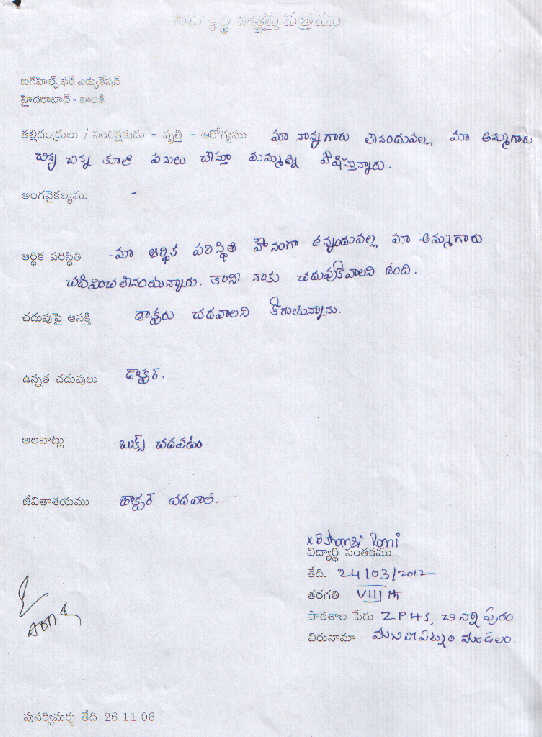 హైదరాబాద్ -
తల్లిదండ్రులు / సంరక్షకుడు - వృత్తి - ఆరోగ్యము మా నాన్నగారు లేనందువల్ల, మా అమ్మగారు
చిన్న చిన్న కూలి పనులు చేస్తూ మమ్మల్ని పోషిస్తున్నారు.
అంగవైకల్యము. -
ఆర్థిక పరిస్థితి - మా ఆర్థిక పరిస్థితి హీనంగా ఉన్నందువల్ల మా అమ్మగారు
నాకు చదువుకోవాలని ఉంది.
చదువుపై ఆసక్తి డాక్టరు చదవాలని కోరుతున్నాను.
ఉన్నత చదువులు డాక్టర్.
అలవాట్లు బుక్స్ చదవడం
జీవితాశయము డాక్టర్ చదవాలి.
విద్యార్థి సంతకము
తేది. 24/03/2012
తరగతి VIII th
పాఠశాల పేరు ZPHS,
చిరునామా మండలం.
తేది 26.11.06